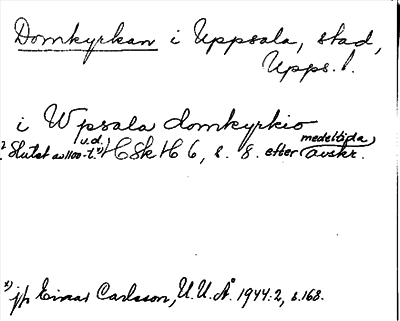 Domkyrkan i Uppsala, stad,
Upps. l.
i Wpsala domkyrkio
? Slutet av 1100-t. x) u.d. HSkH 6, s. 8. efter medeltida avskr.
x) jfr Einar Carlsson, U.U.Å. 1944:2, s. 168.